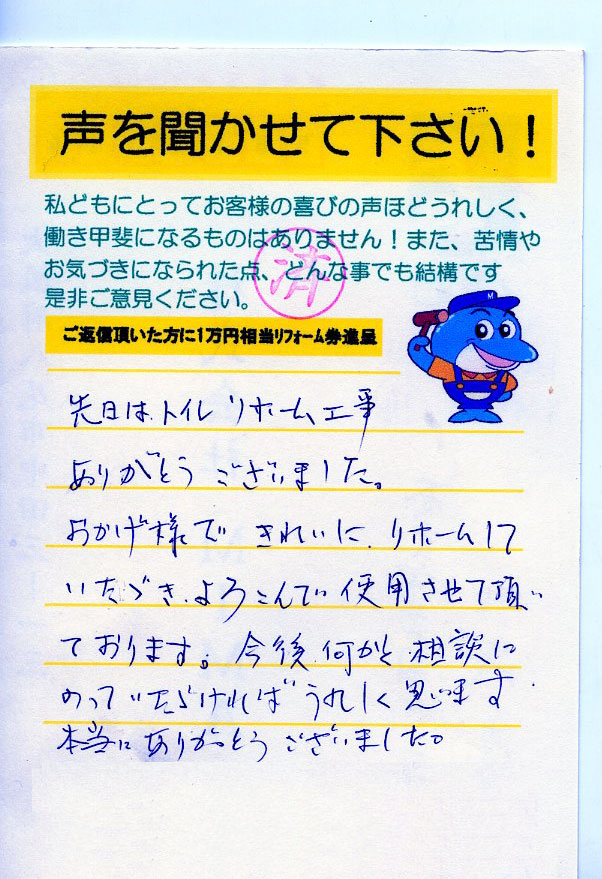 声を聞かせて下さい！
私どもにとってお客様の喜びの声ほどうれしく、
働き甲斐になるものはありません！また、苦情や
お気づきになられた点、どんな事でも結構です
是非ご意見ください。
済
ご返信頂いた方に1万円相当リフォーム券進呈
M
先日は、トイレ リホーム工事
ありがとう ございました。
おかげ様で きれいに、リホームして
いただき、よろこんで 使用させて頂い
ております。今後、何かと 相談に
のっていただければ うれしく思います
本当に ありがとう ございました。